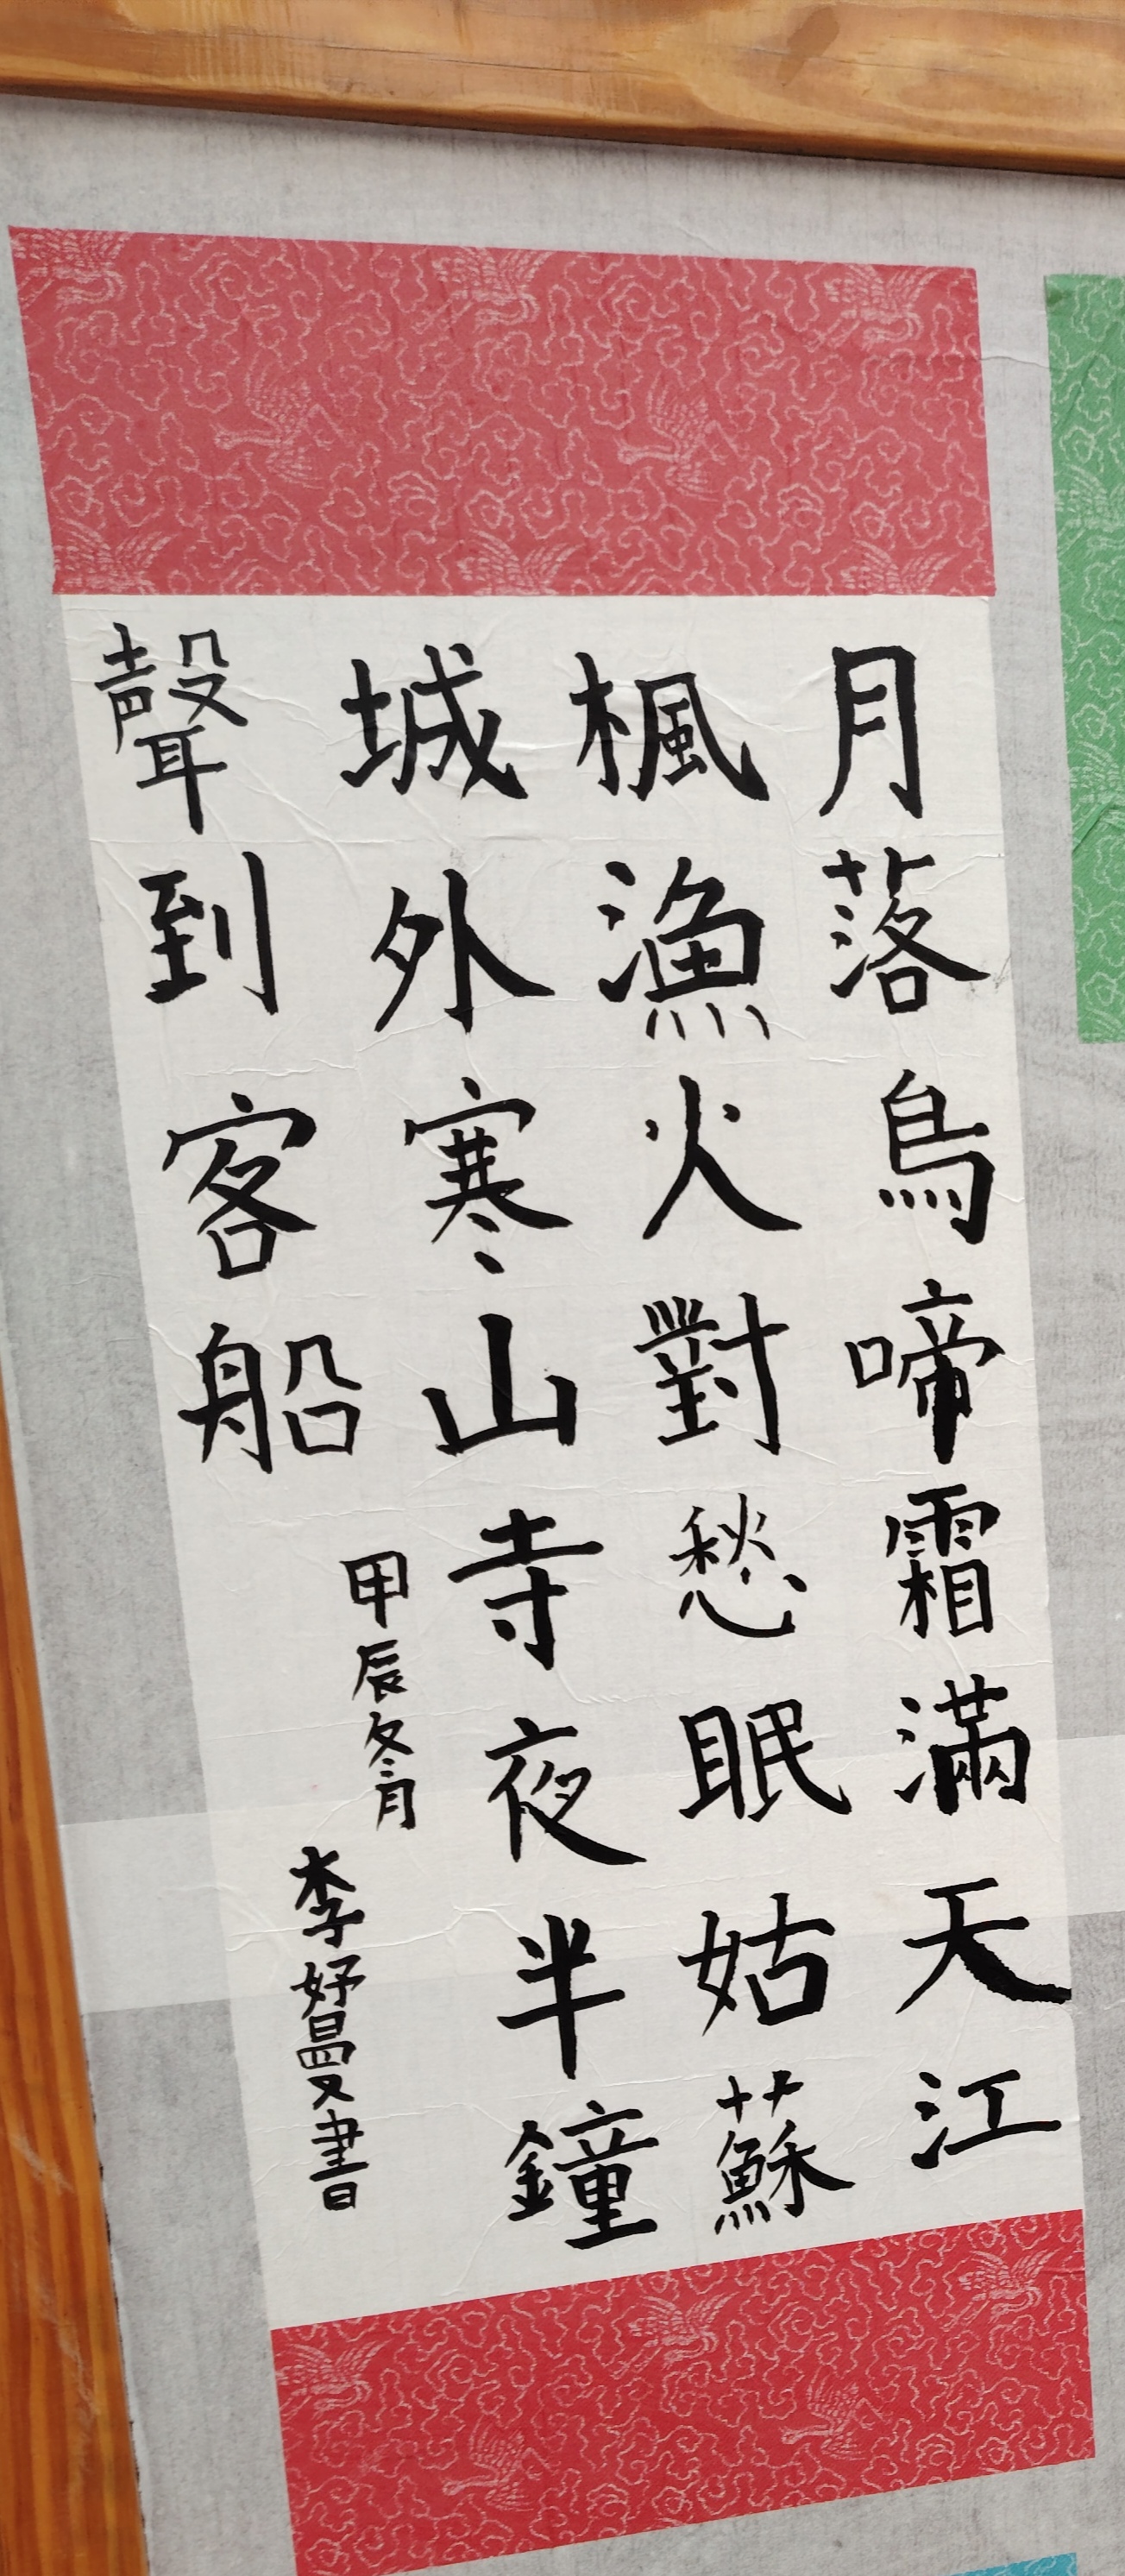 月落烏啼霜滿天江
楓漁火對愁眠姑蘇
城外寒山寺夜半鐘
聲到客船
甲辰冬月
李妤曼書